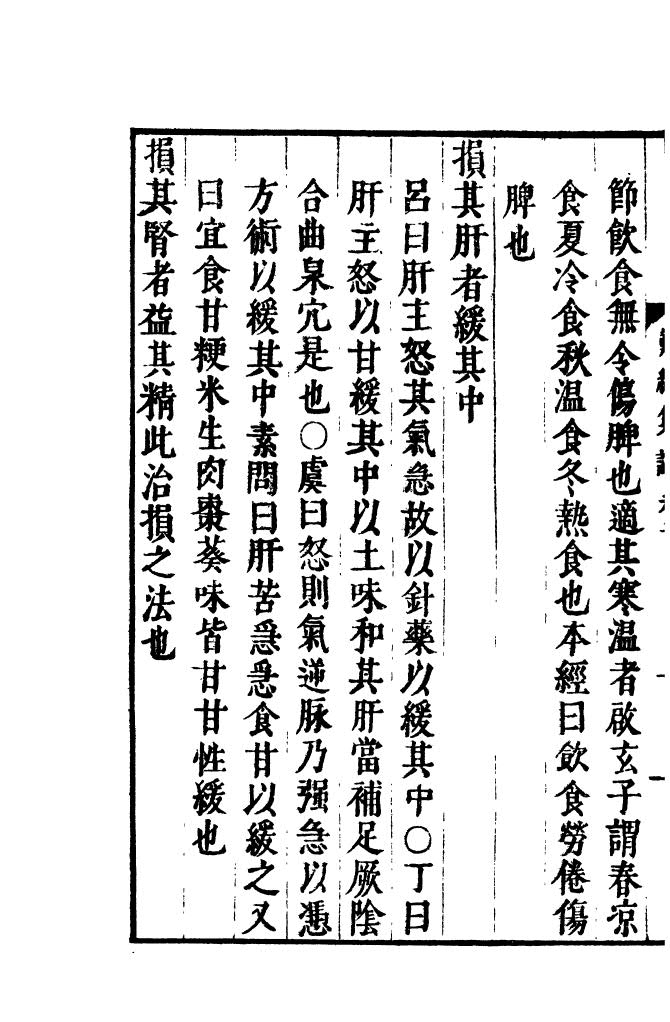 節飲食無令傷脾也適其寒温者啟玄子謂春凉
食夏冷食秋温食冬熱食也本經曰飲食勞倦傷
脾也
損其肝者緩其中
呂曰肝主怒其氣急故以針藥以緩其中〇丁曰
肝主怒以甘緩其中以土味和其肝當補足厥隂
合曲泉穴是也〇虞曰怒則氣逆脉乃强急以憑
方術以緩其中素問曰肝苦急急食甘以緩之又
曰宜食甘粳米生肉棗葵味皆甘甘性緩也
損其腎者益其精此治損之法也